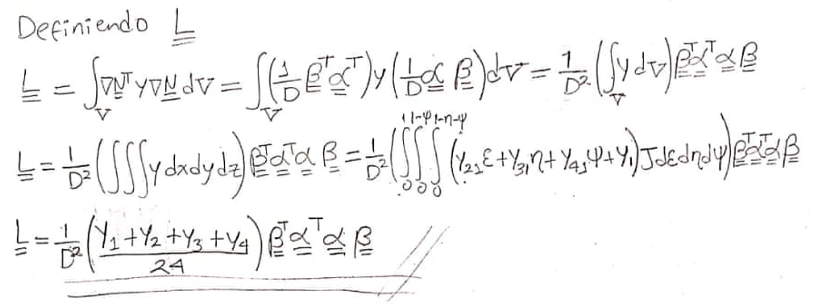 Definiendo L
L = ∫_V ∇N^T y ∇N dV = ∫_V (1/D β^T α^T) y (1/D α β) dV = 1/D² (∫_V y dV) β^T α^T α β
L = 1/D² (∫∫∫ y dx dy dz) β^T α^T α β = 1/D² (∫_0^1 ∫_0^{1-ψ} ∫_0^{1-η-ψ} (Y_21 ε + Y_31 η + Y_41 ψ + Y_1) J dε dη dψ) β^T α^T α β
L = 1/D² ((Y_1 + Y_2 + Y_3 + Y_4)/24) β^T α^T α β //